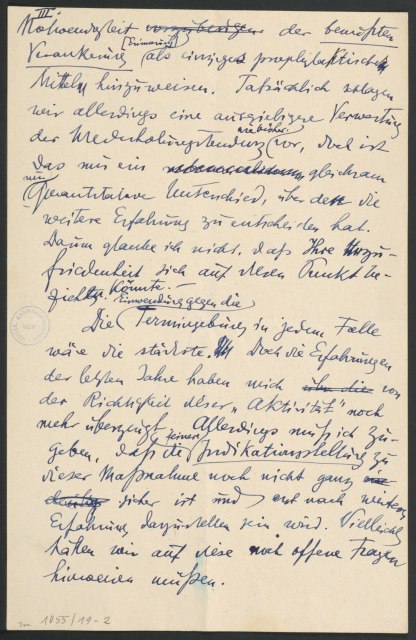 III.
Notwendigkeit der bewußten
Verankerung (Erinnerung) als einziges prophylaktisches
Mittel hinzuweisen. Tatsächlich schlagen
wir allerdings eine ausgiebigere Verwertung
der Wiederholungstendenz wie bisher vor, doch ist
das nur ein gleichsam
nur quantitativer Unterschied, über den die
weitere Erfahrung zu entscheiden hat.
Darum glaube ich nicht, daß Ihre Unzu-
friedenheit sich auf diesen Punkt be-
ziehen könnte. –
Die Einwendung gegen die Termingebung in jedem Falle
wäre die stärkste. Doch die Erfahrungen
der letzten Jahre haben mich von
der Richtigkeit dieser „Aktivität" noch
mehr überzeugt. Allerdings muß ich zu-
geben, daß die Indikationsstellung zu
dieser Maßnahme noch nicht ganz
sicher ist und erst nach weiterer
Erfahrung darzustellen sein wird. Vielleicht
hätten wir auf diese noch offene Fragen
hinweisen müssen.
1055/19-2